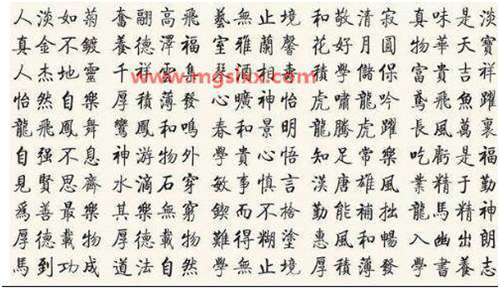 人淡如菊 奮翮高飛 藝無止境 和敬清寂 真味是淡
真金不鍍 養德澤福 室雅蘭馨 花好月圓 物華天寶
人杰地靈 千祥雲集 酒相 積學儲 富貴吉祥
www.mgslxx.com
怡然自樂 厚積薄發 心曠神怡 虎嘯龍吟 鳶飛魚躍
龍飛鳳舞 鸞鳳和鳴 春和景明 龍騰虎躍 長風萬裏
自强不息 神游物外 學貴心悟 知足常樂 吃虧是福
見賢思齊 水滴石穿 敏事慎言 漢唐雄風 業精于勤
爲善最樂 其樂無窮 鍥而不捨 勤能補拙 龍馬精神
厚德載物 厚德載物 難得糊塗 惠風和暢 入幽出朗
馬到功成 道法自然 學無止境 厚積薄發 學書養志